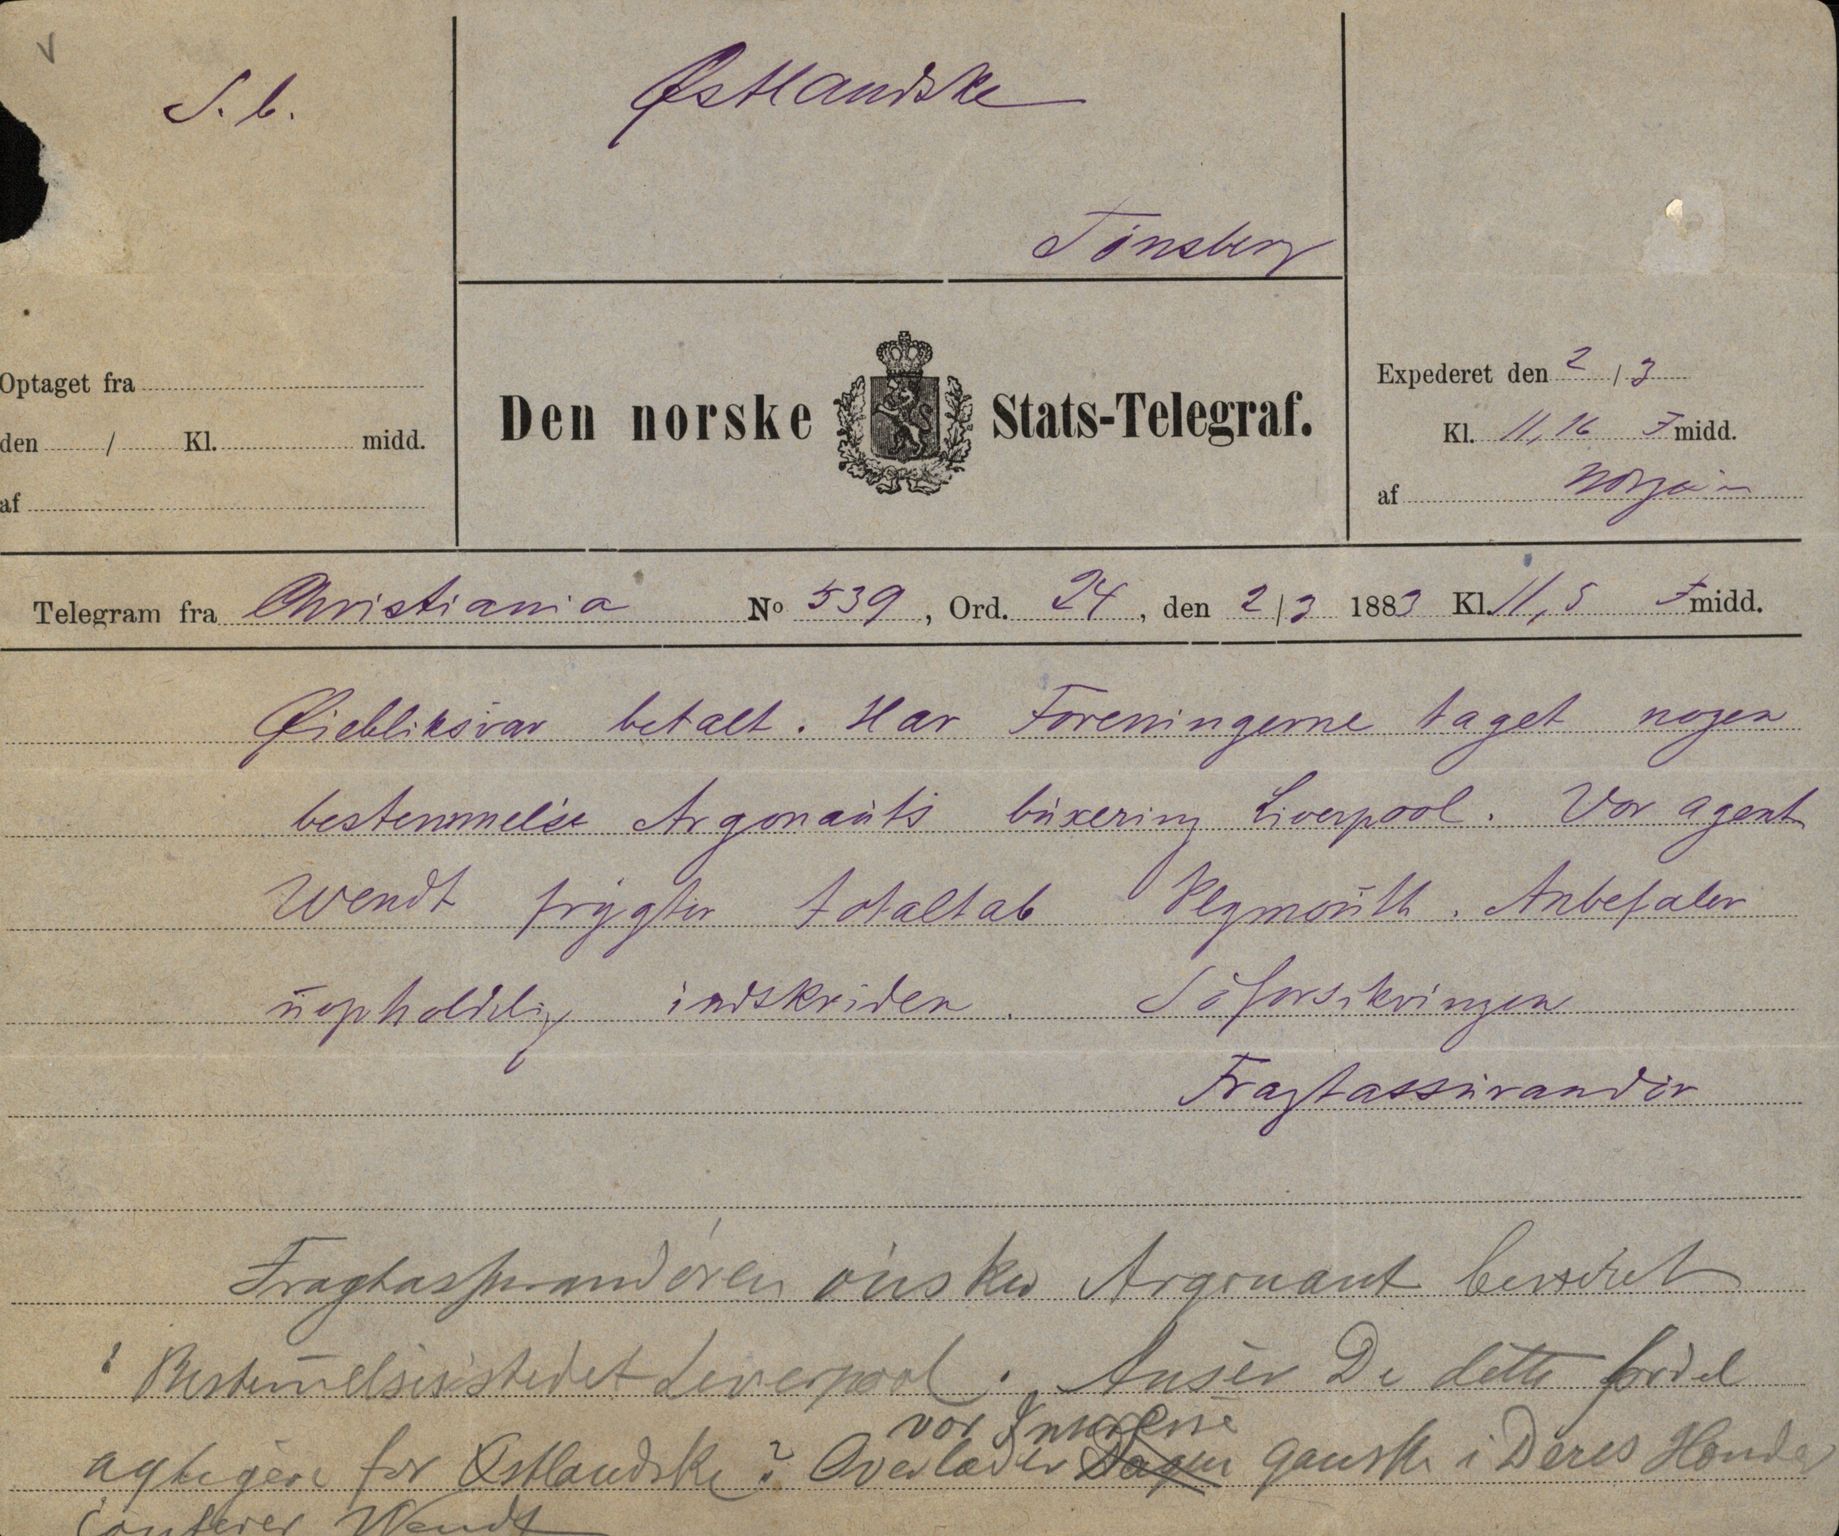 S. b.
Østlandske
Tønsberg
Optaget fra
den / Kl. midd.
af
Den norske Stats-Telegraf.
Expederet den 2 / 3
Kl. 11,16 F midd.
af
Telegram fra Christiania No 539, Ord. 24, den 2/3 1883 Kl. 11,5 F midd.
Øiebliksvar betalt. Har Foreningerne taget nogen
bestemmelse Argonauts buxering Liverpool. Vor agent
Wendt frygter totaltab Plymouth. Anbefaler
uopholdelig indskriden. Söforsikringen
Fragtassurandör
Fragtassurandören önsker Argonaut
i Bestem̅elsesstedet Liverpool. Anser De dette fordel
agtigere for Østlandske? Overlader vor Interesse Sagen ganske i Deres Hænder
Conferer Wendt